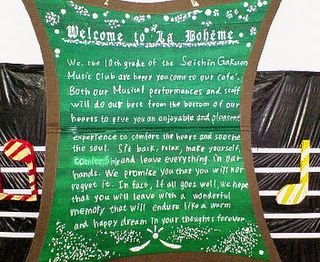 Welcome to La Bohème
We, the 10th grade of the Seishin Gakuen
Music Club are happy you come to our cafe.
Both our Musical performances and staff
will do our best from the bottom of our
hearts to give you an enjoyable and pleasent
experience to comfort the heart and soothe
the soul. Sit back, relax, make yourself
comfortable and leave everything in our
hands. We promise you that you will not
regret it. In fact, If all goes well, we hope
that you will leave with a wonderful
memory that will endure like a warm
and happy dream in your thoughts forever.